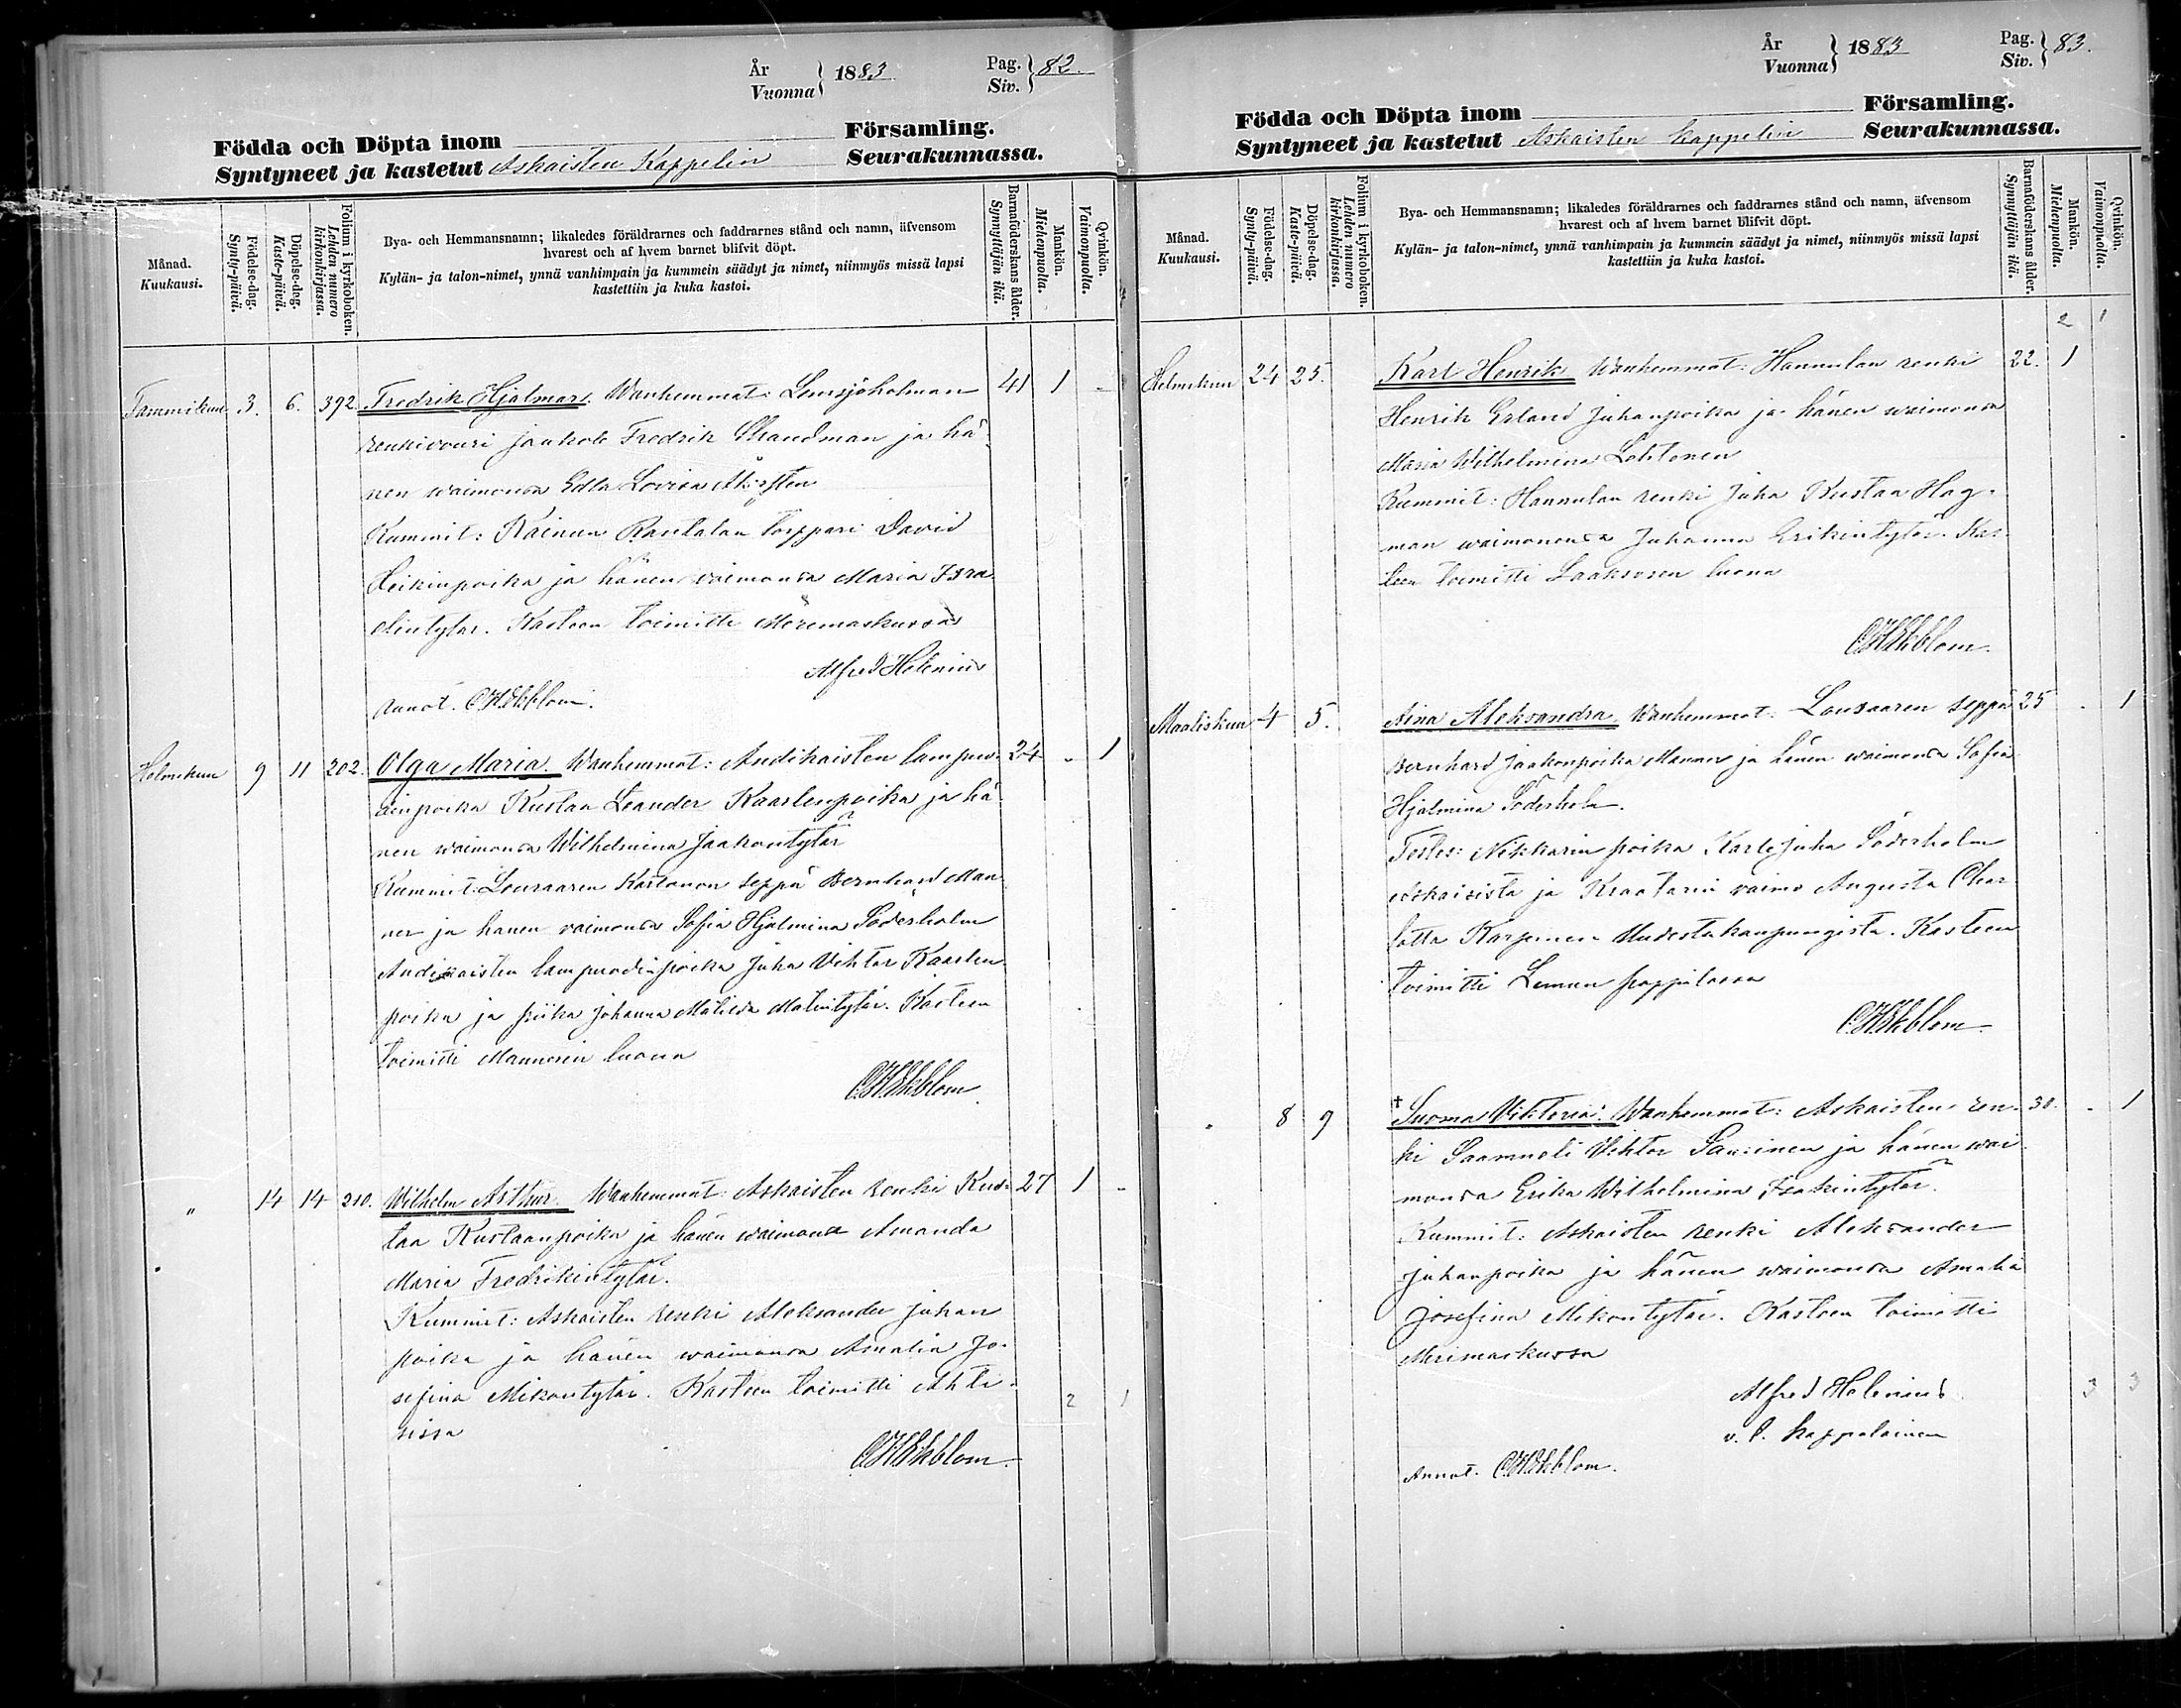 År
Vuonna } 1883
Pag.
Siv. } 82.
Födda och Döpta inom Församling.
Syntyneet ja kastetut Askaisten Kappelin Seurakunnassa.
Månad.
Kuukausi.
Födelse-dag.
Synty-päivä.
Döpelse-dag.
Kaste-päivä.
Folium i kyrkoboken.
Lehden numero
kirkonkirjassa.
Bya- och Hemmansnamn; likaledes föräldrarnes och faddrarnes stånd och namn, äfvensom
hvarest och af hvem barnet blifvit döpt.
Kylän- ja talon-nimet, ynnä vanhimpain ja kummein säädyt ja nimet, niinmyös missä lapsi
kastettiin ja kuka kastoi.
Barnaföderskans ålder.
Synnyttäjän ikä.
Mankön.
Miehenpuolia.
Qvinkön.
Vaimonpuolia.
Tammikuu 3. 6. 392. Fredrik Hjalmar. Wanhemmat: Lemsjöholman 41 1 -
renkivouri Jaakob Fredrik Strandman ja hä-
nen waimonsa Edla Lovisa
Kummit: Kainun Rantalan torppari David
Heikinpoika ja hänen vaimonsa Maria Isra-
elintytär. Kasteen toimitti Merimaskussa
Alfred Helenius
Annot. C H Ekblom.
Helmikuu 9 11 202. Olga Maria. Wanhemmat: Andikaisten lampuo- 24 - 1
dinpoika Kustaa Leander Kaarlenpoika ja hä-
nen waimonsa Wilhelmina Jaakontytär
Kummit: Lousaaren Kartanon seppä Bernhard Man-
ner ja hänen vaimonsa Sofia Hjalmina Söderholm
Andikaisten lampuodinpoika Juha Vihtor Kaarlen-
poika ja piika Johanna Matilda Matintytär. Kasteen
toimitti Mannerin luona
C H Ekblom
" 14 14 210. Wilhelm Arthur. Wanhemmat: Askaisten renki Kus- 27 1 -
taa Kustaanpoika ja hänen waimonsa Amanda
Maria Fredrikintytär.
Kummit: Askaisten renki Aleksander Juhan
poika ja hänen waimonsa Amalia Jo-
sefina Mikontytär. Kasteen toimitti Ahti-
sissa 2 1
C H Ekblom.
År
Vuonna } 1883
Pag.
Siv. } 83.
Födda och Döpta inom Församling.
Syntyneet ja kastetut Askaisten kappelin Seurakunnassa.
Månad.
Kuukausi.
Födelse-dag.
Synty-päivä.
Döpelse-dag.
Kaste-päivä.
Folium i kyrkoboken.
Lehden numero
kirkonkirjassa.
Bya- och Hemmansnamn; likaledes föräldrarnes och faddrarnes stånd och namn, äfvensom
hvarest och af hvem barnet blifvit döpt.
Kylän- ja talon-nimet, ynnä vanhimpain ja kummein säädyt ja nimet, niinmyös missä lapsi
kastettiin ja kuka kastoi.
Barnaföderskans ålder.
Synnyttäjän ikä.
Mankön.
Miehenpuolia.
Qvinkön.
Vaimonpuolia.
2 1
Helmikuu 24 25. Karl Henrik Wanhemmat: Hannulan renki 22. 1
Henrik Erland Juhanpoika ja hänen waimonsa
Maria Wilhelmina Lehtonen
Kummit: Hannulan renki Juha Kustaa Hag-
man waimonensa Juhanna Erikintytär. Kas-
teen toimitti Laaksosen luona
C H Ekblom.
Maaliskuu 4 5. Aina Aleksandra Wanhemmat: Lousaaren seppä 25 - 1
Bernhard Jaakonpoika Manner ja hänen waimonsa Sofia
Hjalmina Söderholm.
Testes: Nikkarin poika Karl Juha Söderholm
Askaisista ja Kraatarin vaimo Augusta Char-
lotta Karpinen Uudestakaupungista. Kasteen
toimitti Lemun pappilassa
C H Ekblom
" 8 9 † Suoma Viktoria. Wanhemmat: Askaisten ren- 30. - 1
ki Saamueli Vihtor Saarinen ja hänen wai-
monsa Erika Wilhelmina Isakintytär.
Kummit: Askaisten renki Aleksander
Juhanpoika ja hänen waimonsa Amalia
Josefina Mikontytär. Kasteen toimitti
Merimaskussa
Alfred Helenius 3 3
v. t. kappalainen
Annot. C H Ekblom.